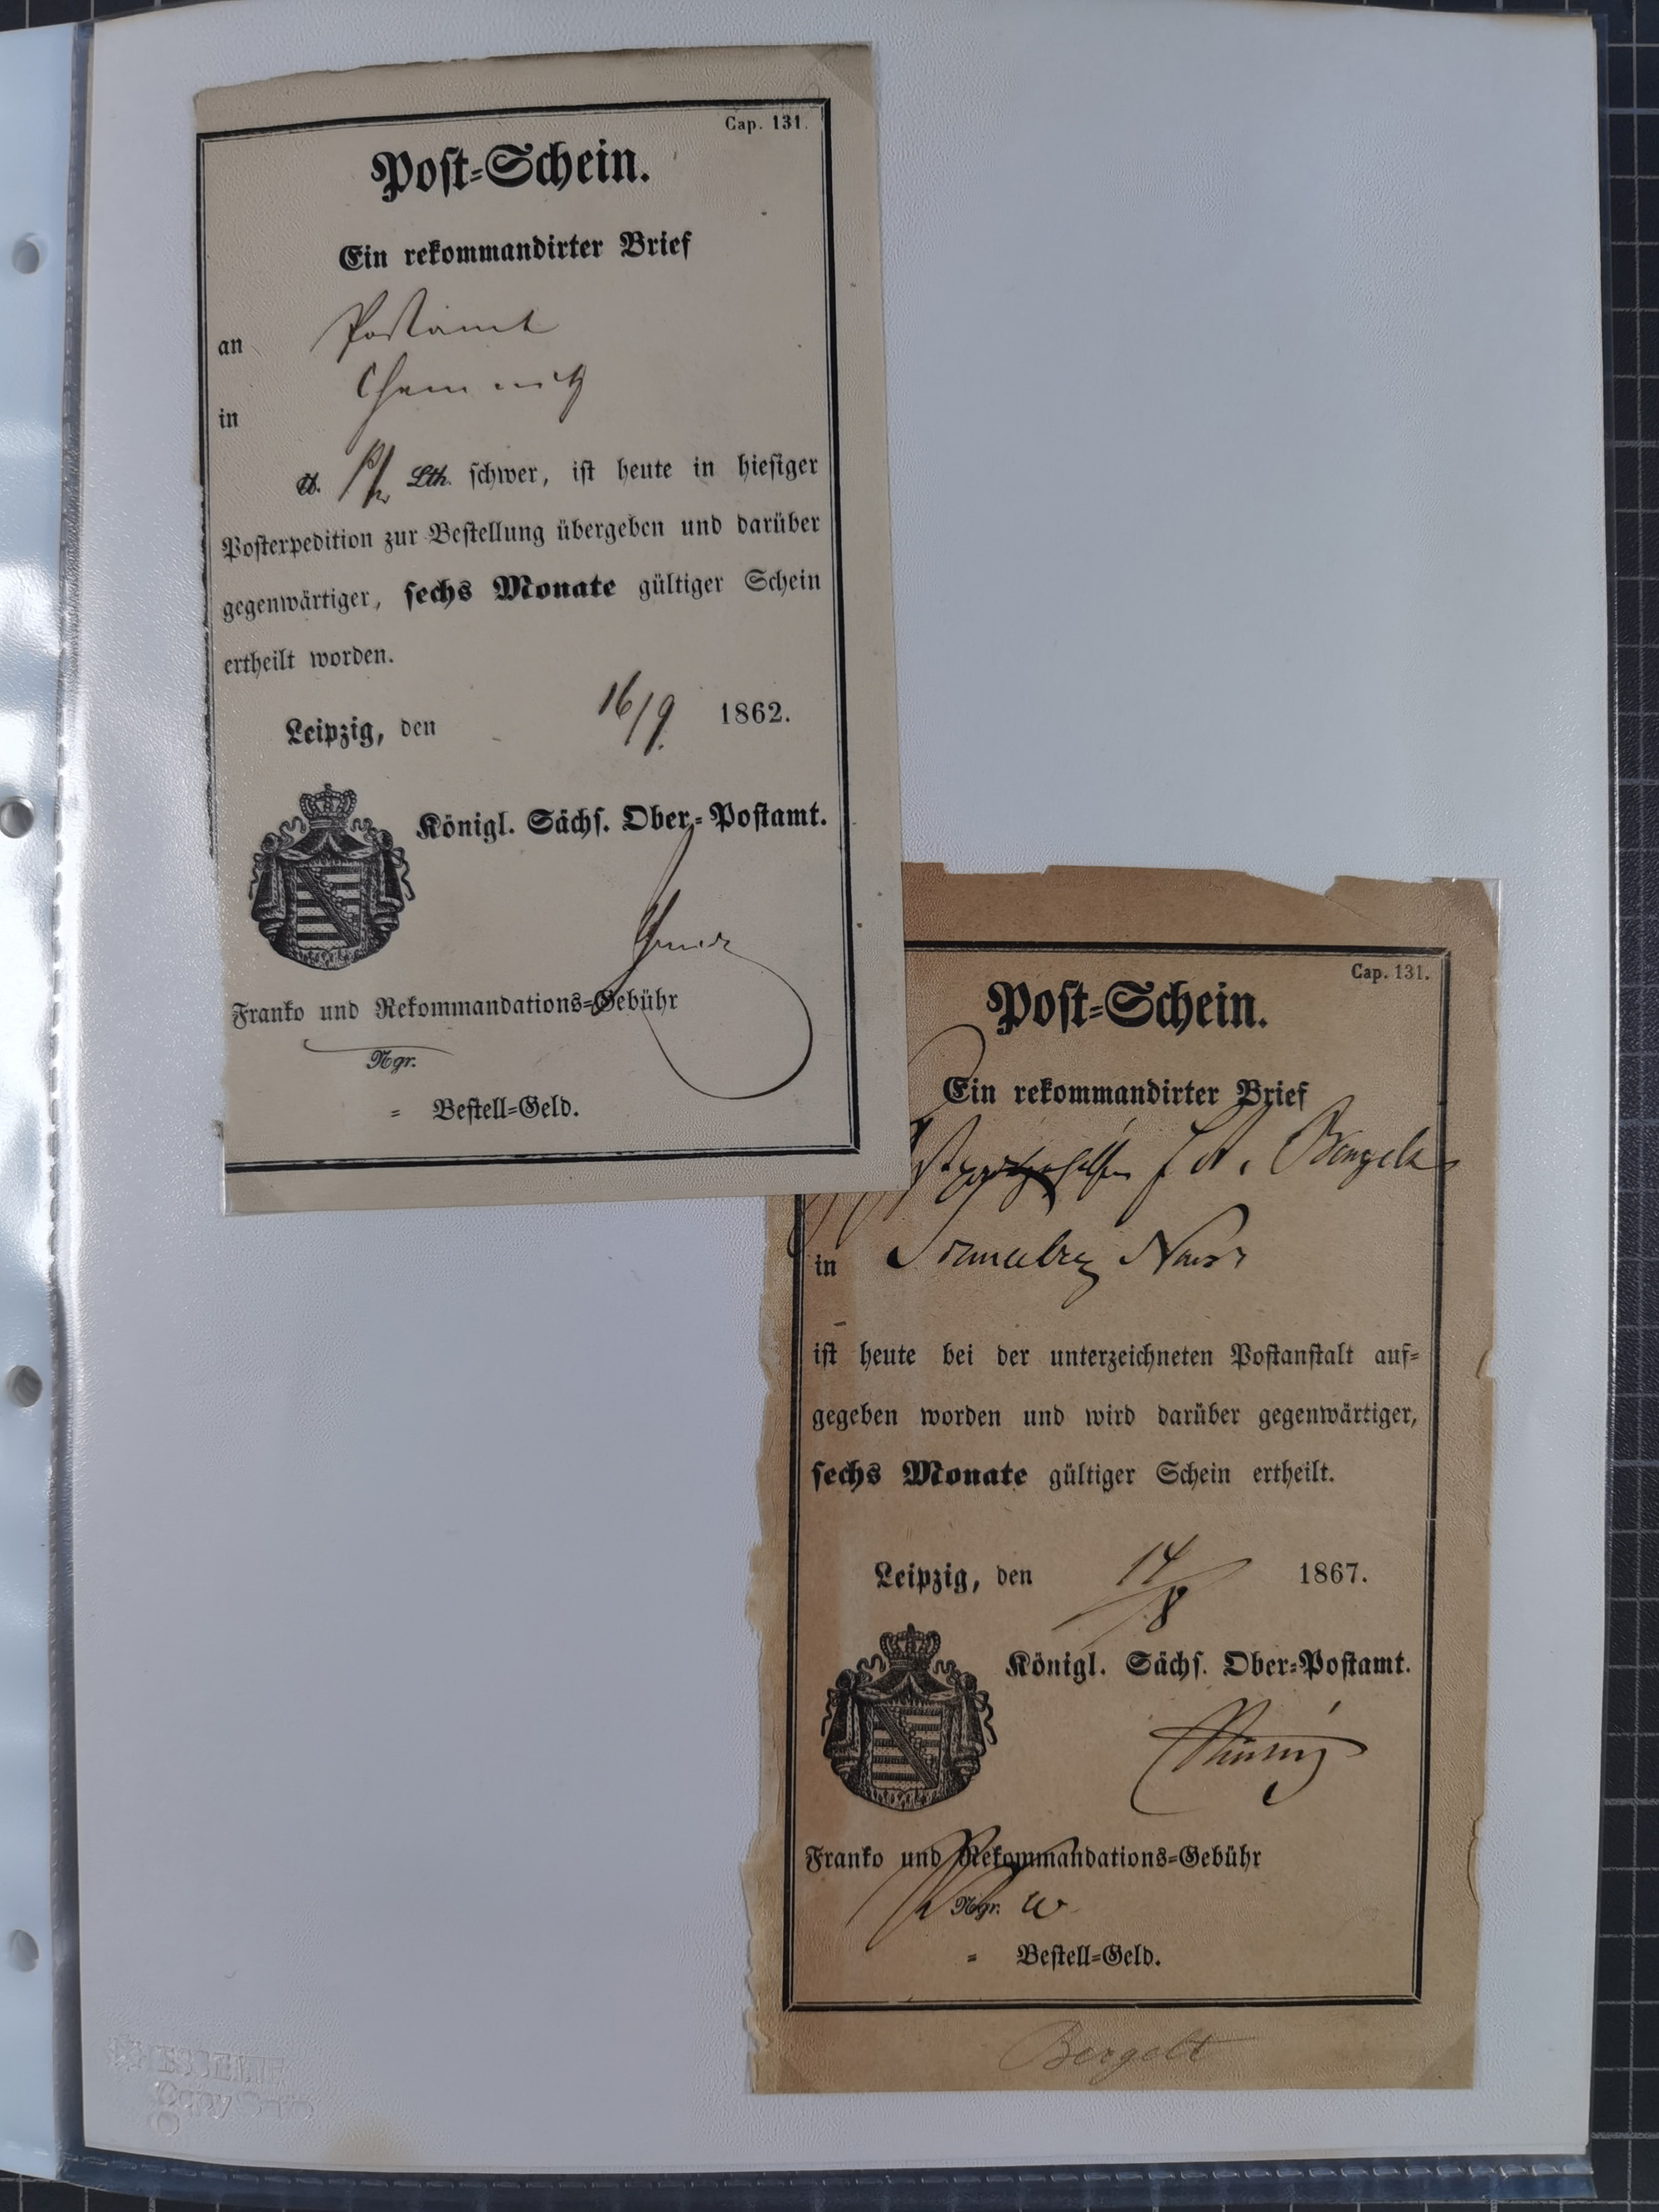 Cap. 131.
Post-Schein.
Ein rekommandirter Brief
an Postamt
in Chemnitz
℔. Lth. schwer, ist heute in hiesiger
Postexpedition zur Bestellung übergeben und darüber
gegenwärtiger, sechs Monate gültiger Schein
ertheilt worden.
Leipzig, den 16/9. 1862.
Königl. Sächs. Ober-Postamt.
Franko und Rekommandations-Gebühr
Ngr.
= Bestell-Geld.
Cap. 131.
Post-Schein.
Ein rekommandirter Brief
in
ist heute bei der unterzeichneten Postanstalt auf-
gegeben worden und wird darüber gegenwärtiger,
sechs Monate gültiger Schein ertheilt.
Leipzig, den 14/8 1867.
Königl. Sächs. Ober-Postamt.
Franko und Rekommandations-Gebühr
Ngr.
= Bestell-Geld.
Bergelt